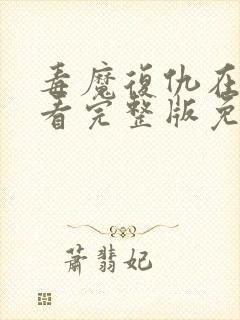 毒魔復仇在
看完整版免
蕭翡妃